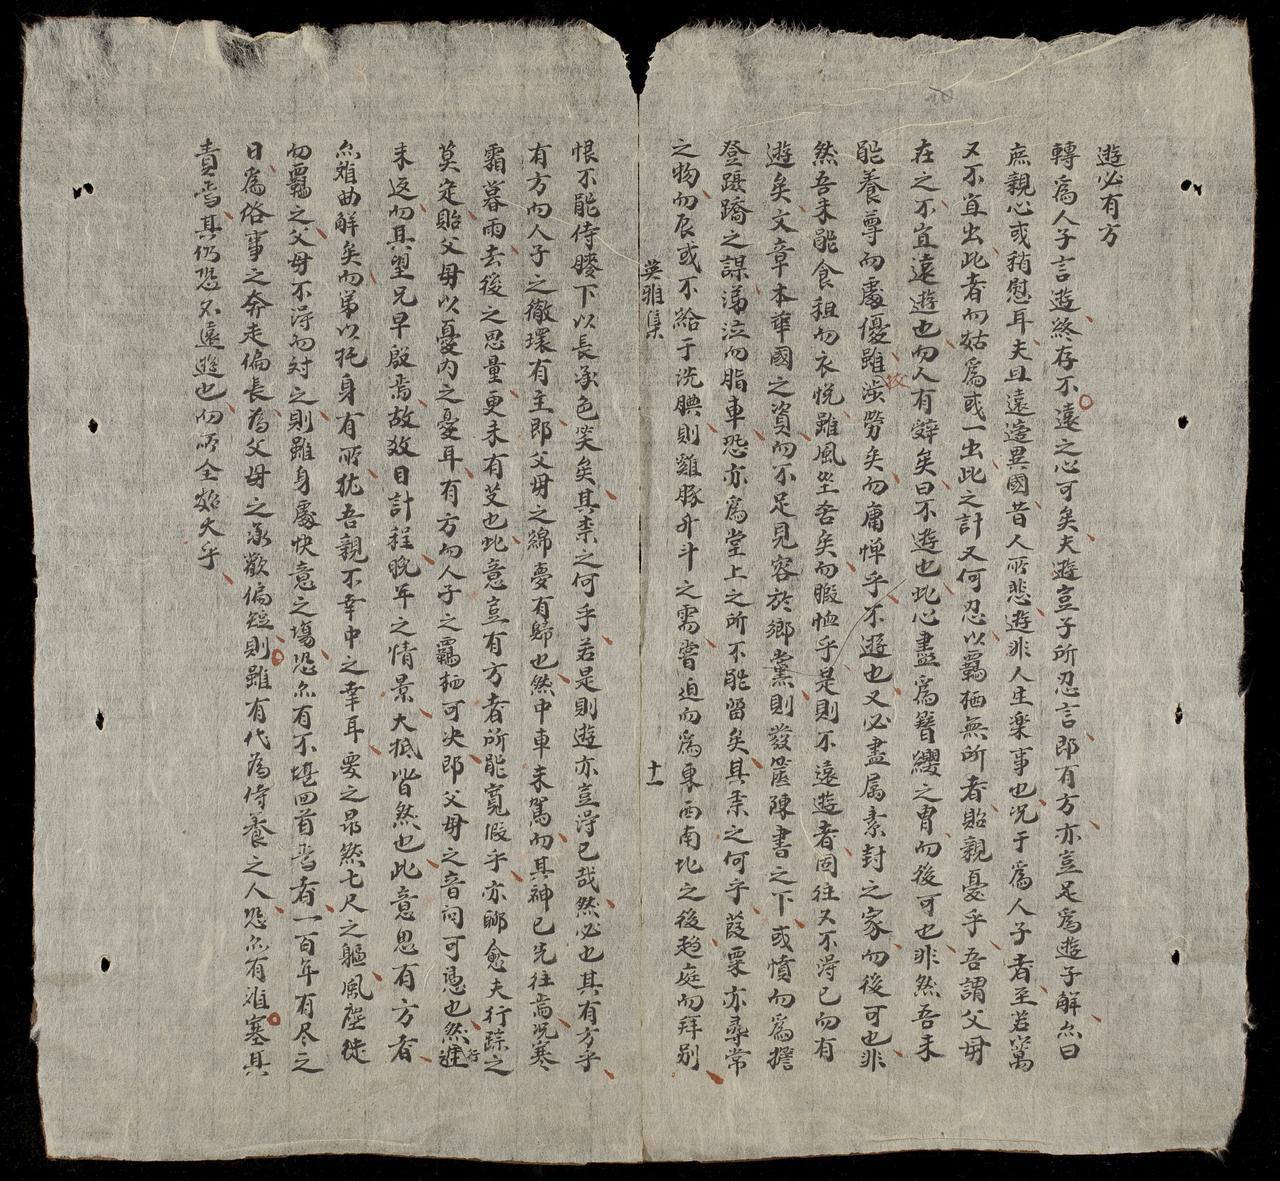 遊必有方
轉為人子言遊終存不遠之心可矣夫遊豈子所忍言即有方亦豈足為遊子解尒曰
庶親心或稍慰耳夫且遠邊異國昔人所悲遊非人生樂事也况于為人子者至若寓
又不宜出此者而姑為或一出此之計又何忍以羈栖無所者貽親憂乎吾謂父母
在之不宜遠遊也而人有辤矣曰不遊也此心盡為簪纓之胄而後可也非然吾未
能養尊而處優雖 勞矣而庸憚乎不遊也又必盡属素封之家而後可也非
然吾未能食租而衣悦雖風坐奮矣而暇恤乎是則不遠遊者固往又不淂已而有
遊矣文章本華國之資而不足見容於鄉黨則發篋陳書之下或憤而為擔
登躡蹻之謀涕泣而脂車恐亦為堂上之所不能留矣其柰之何乎菽粟亦尋常
之物而辰或不給于洗腆則雞豚升斗之需嘗迫而為東西南北之後趋庭而拜别
英雅集
十一
恨不能侍膝下以長承色笑矣其柰之何乎若是則遊亦豈淂已哉然必也其有方乎
有方而人子之徹環有主即父母之綿夢有歸也然中車未駕而其神已先往耑况寒
霜暮雨去後之思量更未有艾也此意豈有方者所能寬假乎亦聊愈夫行踪之
莫定貽父母以憂内之憂耳有方而人子之羈栖可决即父母之音问可憑也然進行
未返而其望兄早殷焉故效目計程晚年之情景大抵皆然也此意思有方者
尒难曲解矣而第以托身有所犹吾親不幸中之幸耳要之昂然七尺之軀風塵徒
而羈之父母不淂而対之則雖身處快意之塲恐尒有不堪回首者一百年有尽之
日為俗事之奔走偏長為父母之承歡偏短則雖有代為侍養之人恐尒有难塞其
責者其仍忍不遠遊也而所全 大乎